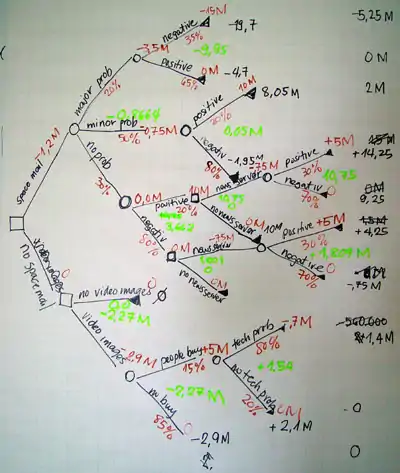 -15M
negative
35%
-19,7
-5,25M
-3,5M
-9,95
positive
0M
65%
-4,7
0M
major prob
20%
2M
10M
positive
20%
8,05M
-0,8664
minor prob
50%
-0,75M
0,05M
negativ
80%
-1,95M
-1,2M
space mail
no prob
30%
0,0M
positive
20%
10M
news server
-75M
positive
30%
+5M
+14,25
10,75
negativ
70%
0
9,25
3,662
negativ
80%
no news server
10M
0M
news serv
-75M
positive
30%
+5M
+4,25
+1,807M
negative
70%
0
-,75M
no news server
0M
no space mail
0
no video images
0
0,0
-2,27M
video images
-2,9M
people buy
15%
+5M
tech prob
80%
-7M
-500.000
1,4M
+1,50
no tech prob
20%
0M
+2,1M
-0
-2,27M
no buy
85%
0
-2,9M
0